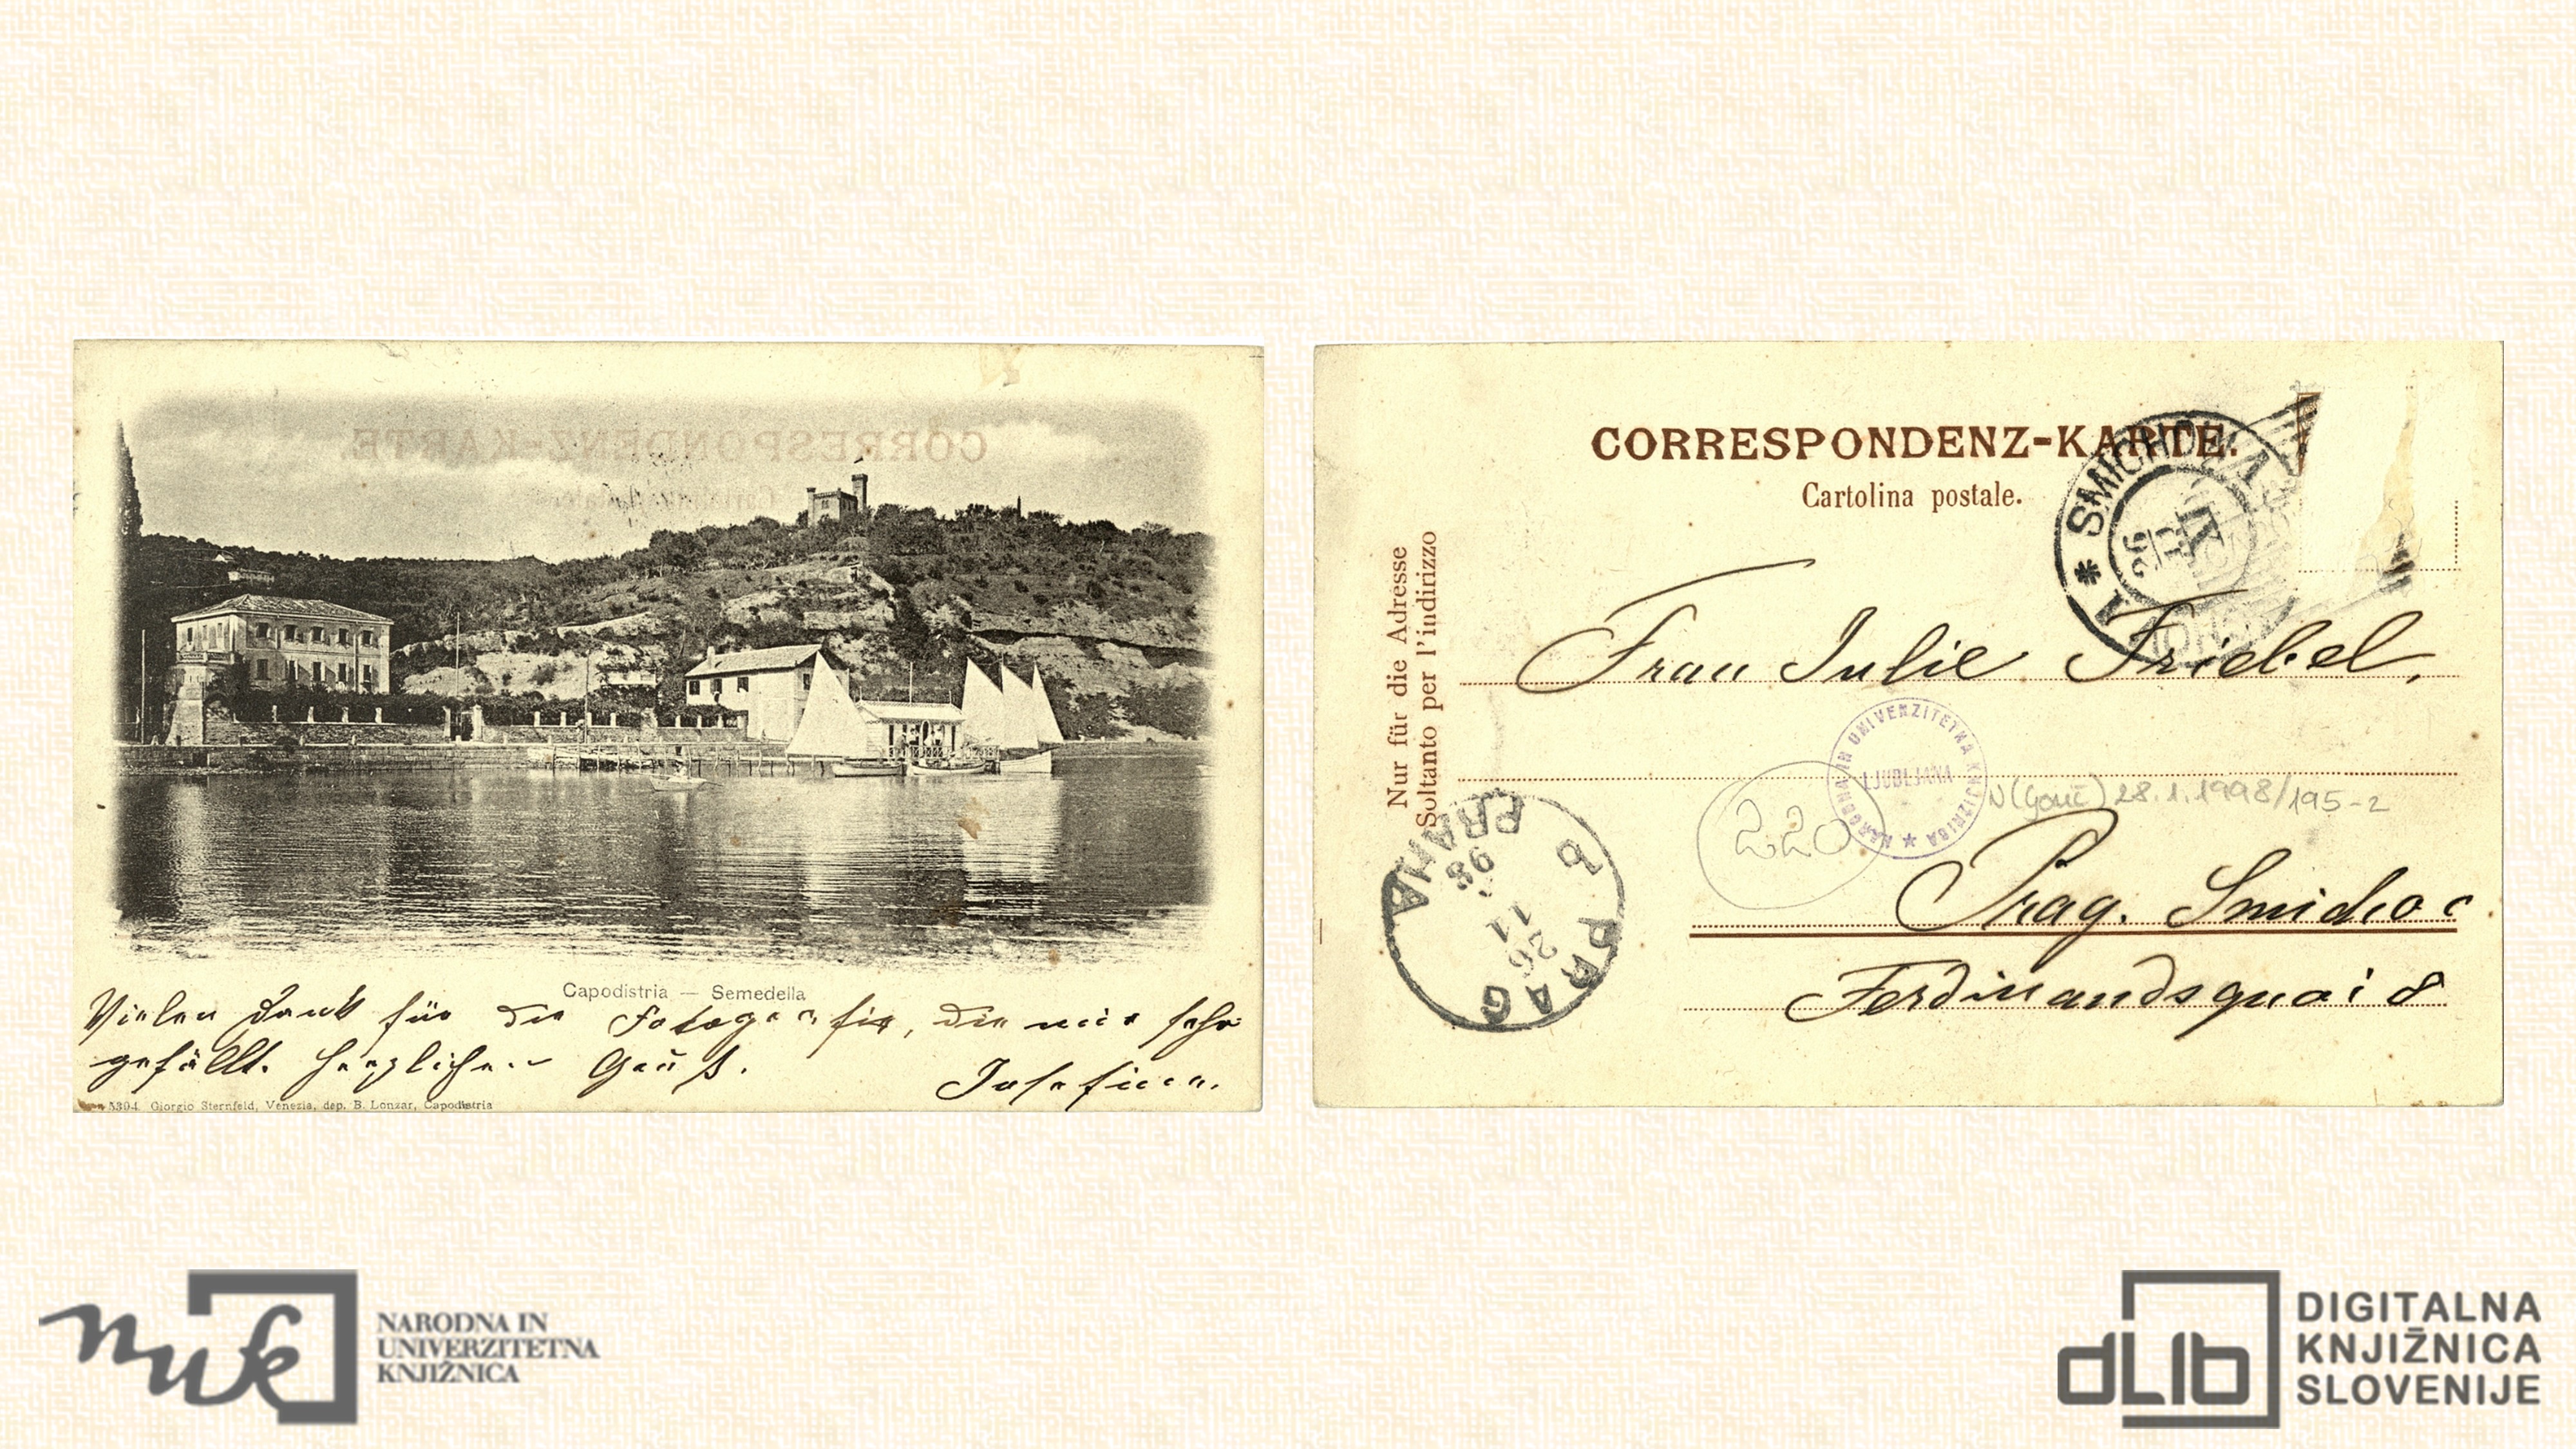 Capodistria — Semedella
Vielen Dank für die Fotografie, die mir sehr
gefällt. Herzlichen Gruß.
Josefine.
5394. Giorgio Sternfeld, Venezia, dep. B. Lonzar, Capodistria
CORRESPONDENZ-KARTE.
Cartolina postale.
Nur für die Adresse
Soltanto per l'indirizzo
SMICHOW 1
Frau Julie Friebel,
NARODNA IN UNIVERZITETNA KNJIŽNICA
LJUBLJANA
28.1.1998/195-2
220
PRAG PRAHA
26
11
98
Prag. Smichov
Ferdinandsquai 8
nuk
NARODNA IN
UNIVERZITETNA
KNJIŽNICA
dLIb
DIGITALNA
KNJIŽNICA
SLOVENIJE